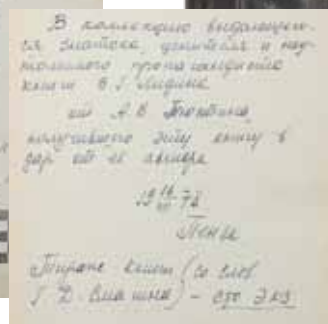 В коллекцию выдающего-
ся знатока, ценителя и неу-
томимого пропагандиста
книги В Г Лидина
от А. В
получившего эту книгу в
дар от её автора
19 78
Пенза
Тираж книги (со слов
Г Д. Смагина) – сто экз